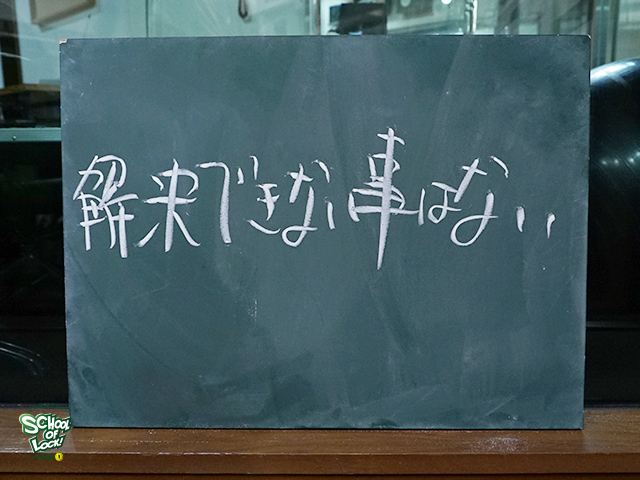 解決できない事はない
SCHOOL
OF
LOCK!